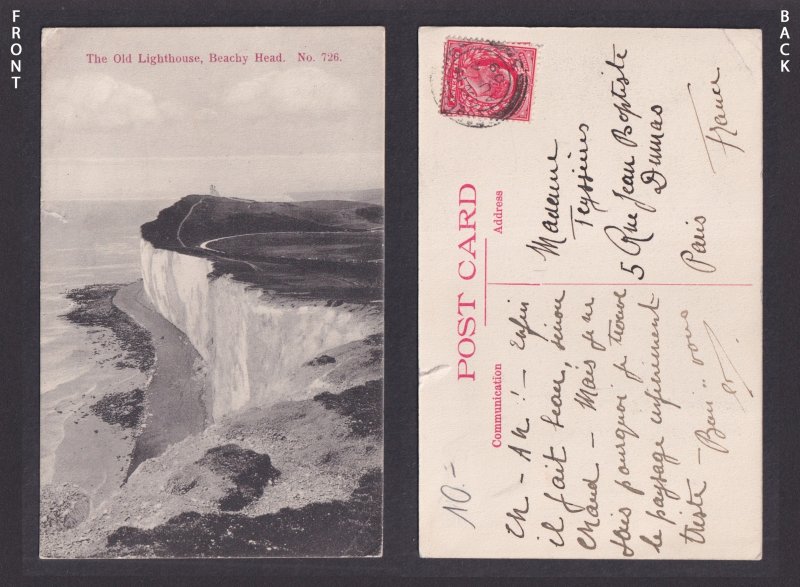 FRONT
BACK
The Old Lighthouse, Beachy Head. No. 726.
POST CARD
Address
Communication
Madame
Teyssières
5 Rue Jean Baptiste
Dumas
Paris
France
Ah ! - Enfin
il fait beau, sinon
chaud - Mais je ne
sais pourquoi je trouve
le paysage infiniment
triste -
10.=